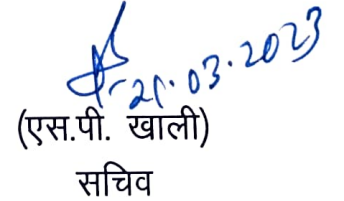 21.03.2023
(एस.पी. खाली)
सचिव